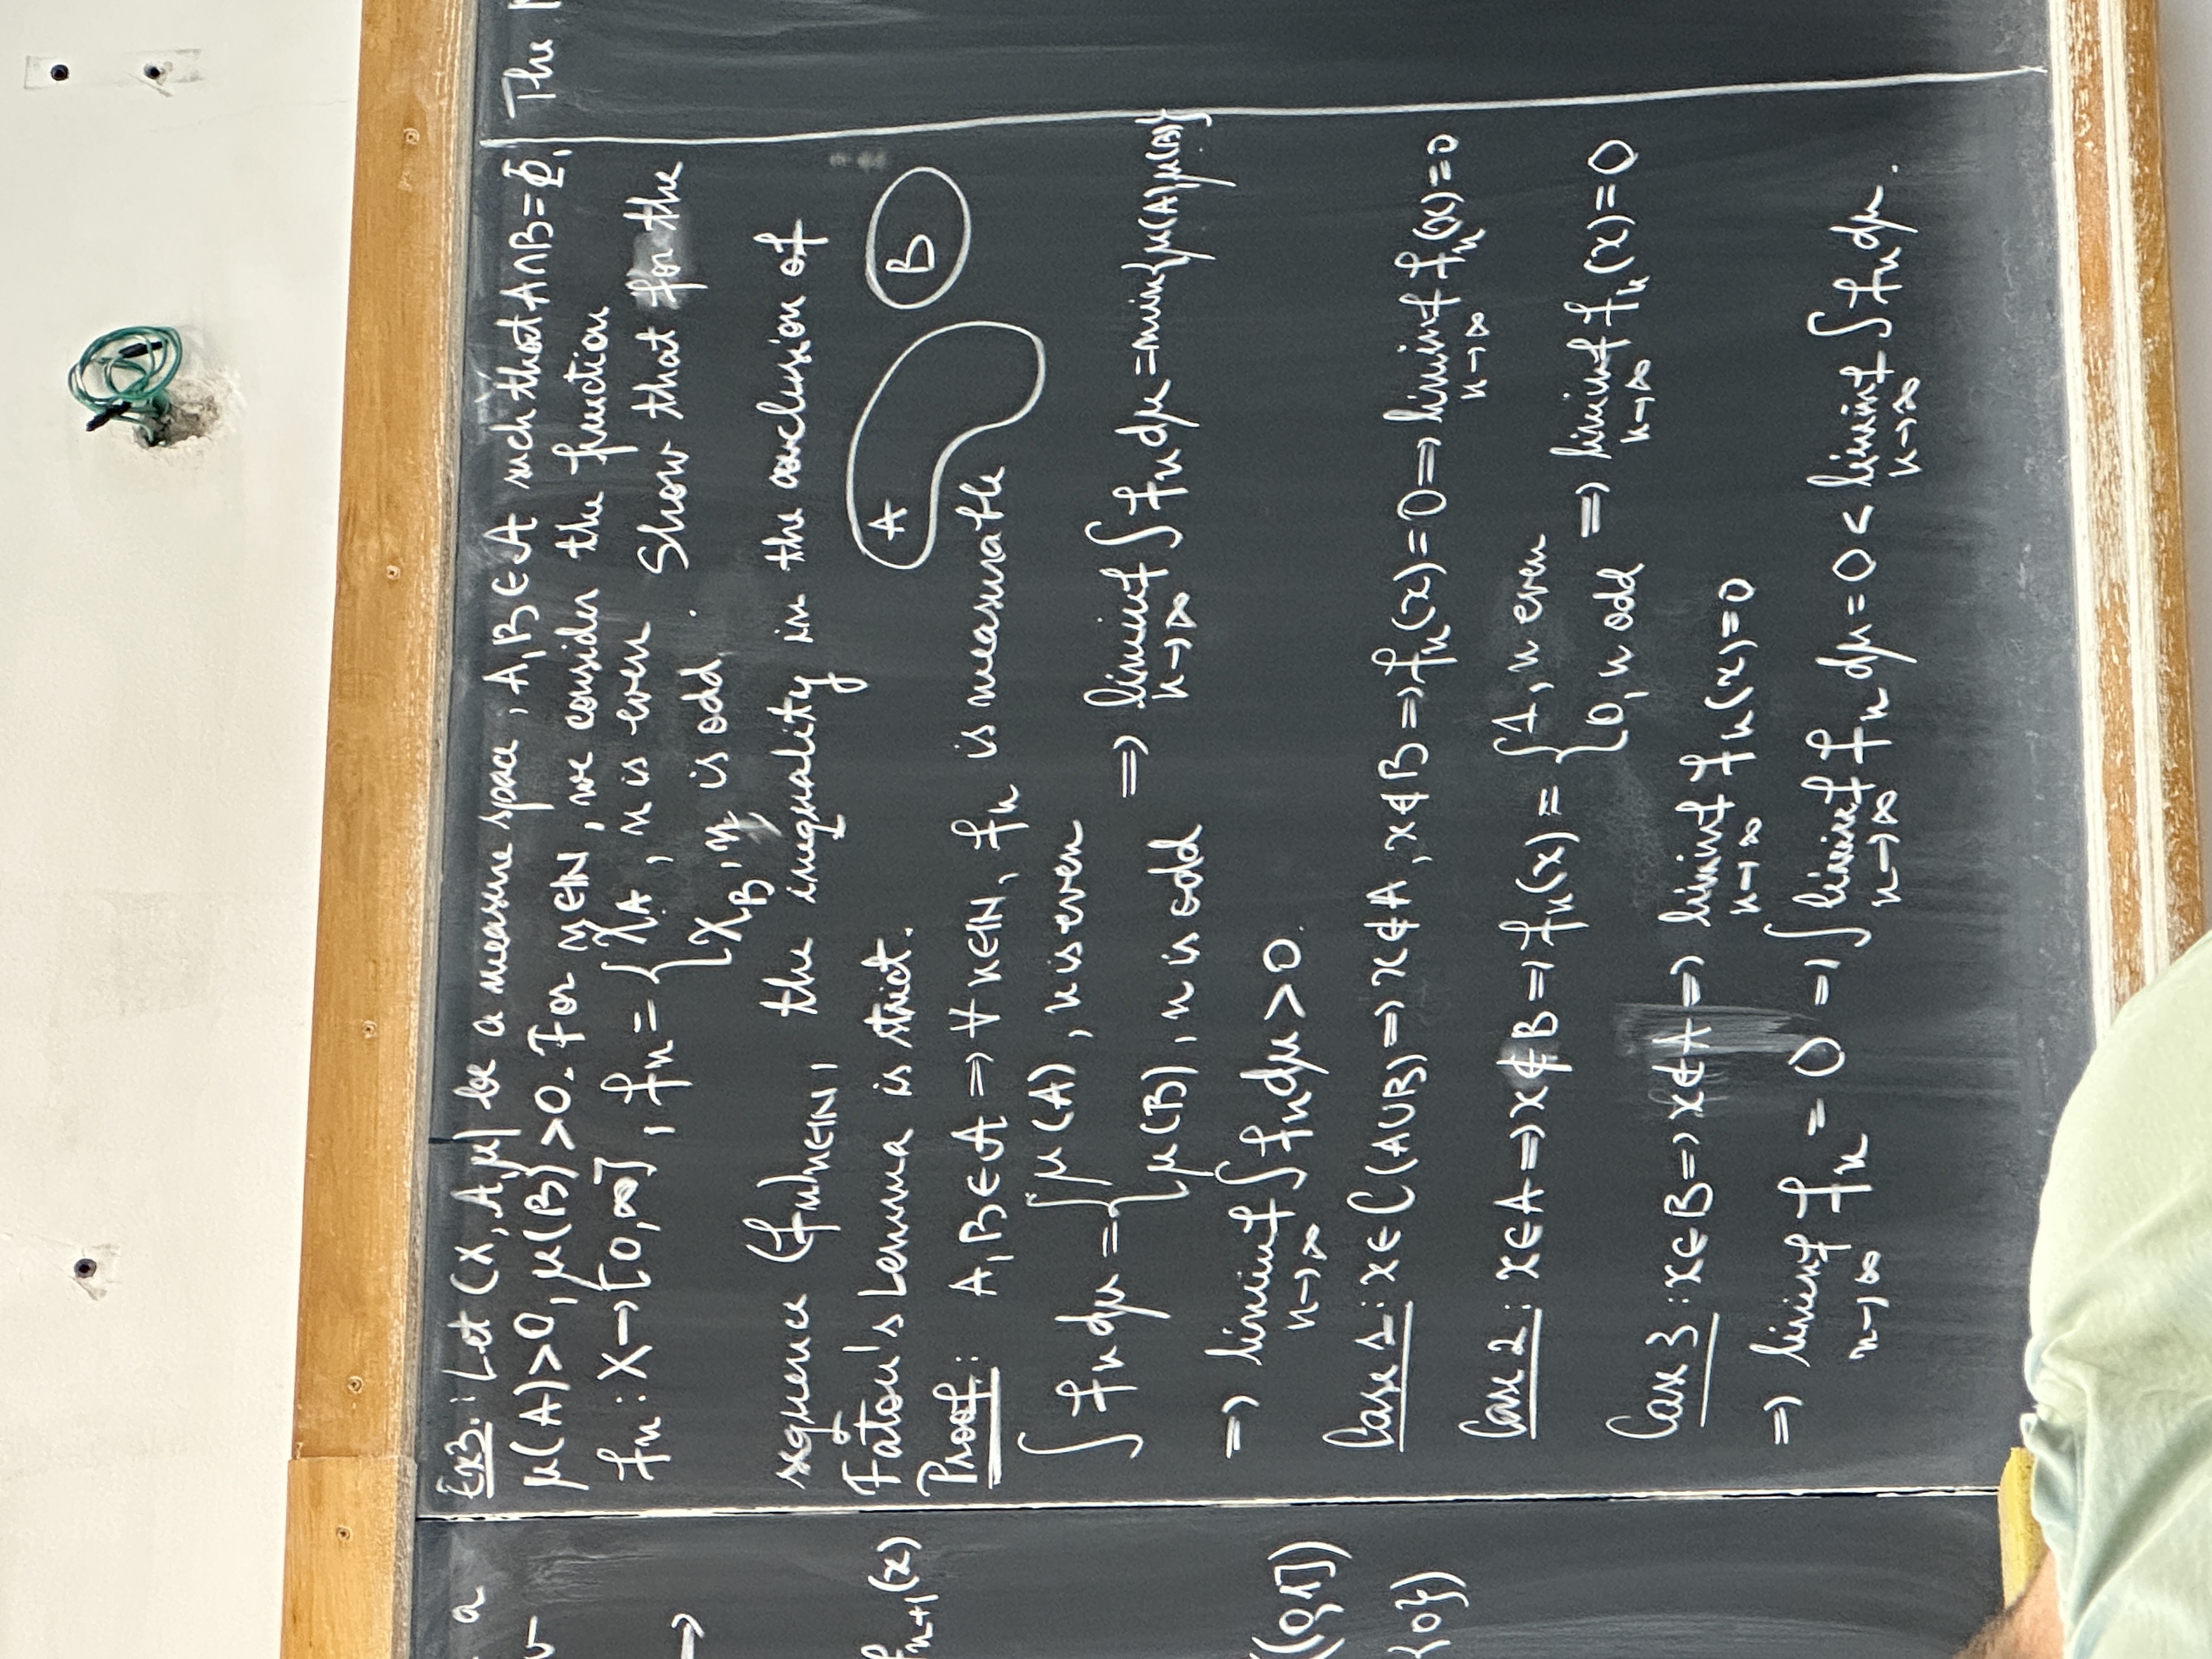 a
Ex3.: Let (X, A, μ) be a measure space, A, B ∈ A such that A∩B = Φ,
μ(A)>0, μ(B)>0. For n∈ℕ, we consider the function
fₙ : X→[0,∞], fₙ = { χ_A, n is even
χ_B, n is odd. Show that for the
sequence (fₙ)ₙ∈ℕ, the inequality in the conclusion of
Fatou's Lemma is strict.
A B
Proof: A, B∈A ⇒ ∀ n∈ℕ, fₙ is measurable
∫ fₙ dμ = { μ(A), n is even
μ(B), n is odd ⇒ liminf n→∞ ∫ fₙ dμ = min{μ(A), μ(B)}
⇒ liminf n→∞ ∫ fₙ dμ > 0.
Case 1: x∈C(A∪B) ⇒ x∉A, x∉B ⇒ fₙ(x)=0 ⇒ liminf n→∞ fₙ(x)=0
Case 2: x∈A ⇒ x∉B ⇒ fₙ(x) = { 1, n even
0, n odd ⇒ liminf n→∞ fₙ(x)=0
Case 3: x∈B ⇒ x∉A ⇒ liminf n→∞ fₙ(x)=0
⇒ liminf n→∞ fₙ = 0 ⇒ ∫ liminf n→∞ fₙ dμ = 0 < liminf n→∞ ∫ fₙ dμ.
→
fₙ₊₁(x)
((0,1])
{0})
The